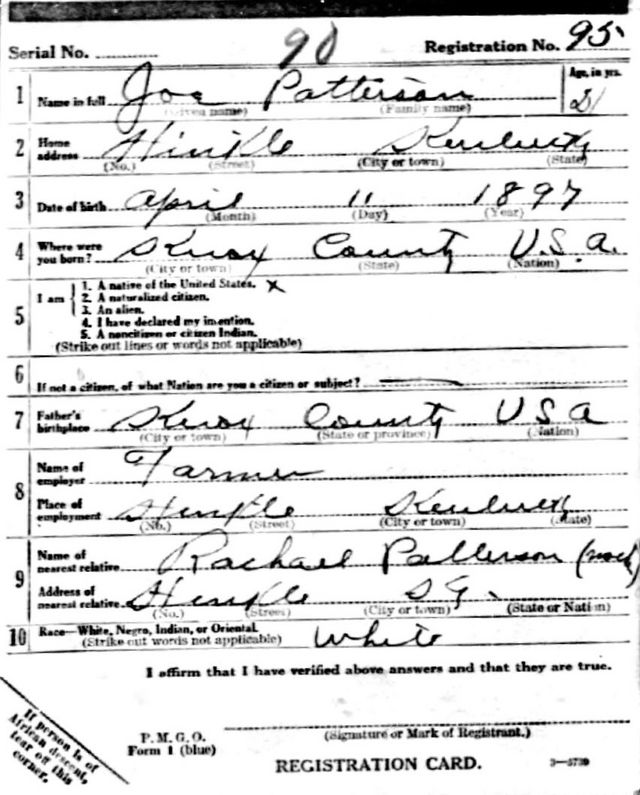 90
Serial No. Registration No. 95
1 Name in full Joe Patterson Age, in yrs. 21
(Given name) (Family name)
2 Home address Hinkle Kentucky
(No.) (Street) (City or town) (State)
3 Date of birth April 11 1897
(Month) (Day) (Year)
4 Where were you born? Knox County U.S.A.
(City or town) (State) (Nation)
5 I am
1. A native of the United States. x
2. A naturalized citizen.
3. An alien.
4. I have declared my intention.
5. A noncitizen or citizen Indian.
(Strike out lines or words not applicable)
6 If not a citizen, of what Nation are you a citizen or subject?
7 Father's birthplace Knox County USA
(City or town) (State or province) (Nation)
8 Name of employer Farmer
Place of employment Hinkle Kentucky
(No.) (Street) (City or town) (State)
9 Name of nearest relative Rachael Patterson
Address of nearest relative Hinkle
(No.) (Street) (City or town) (State or Nation)
10 Race—White, Negro, Indian, or Oriental. White
(Strike out words not applicable)
I affirm that I have verified above answers and that they are true.
If person is of
African descent,
tear off this
corner.
P. M. G. O.
Form 1 (blue)
(Signature or Mark of Registrant.)
REGISTRATION CARD.
3—5739